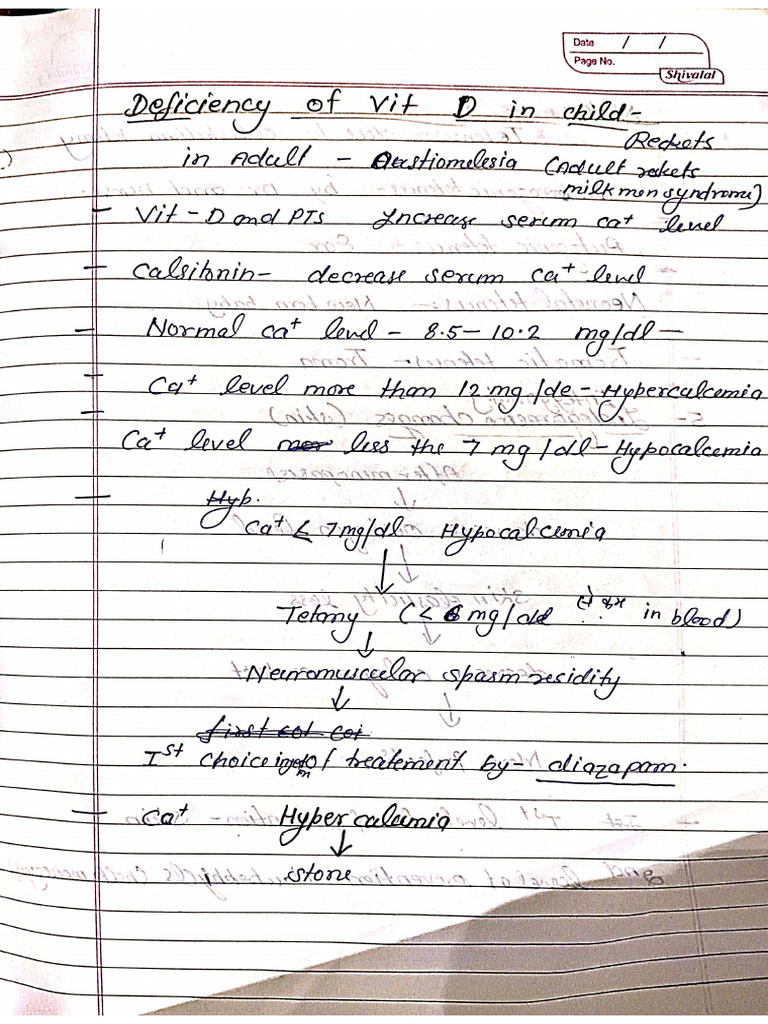 Date / /
Page No.
Shivalal
Deficiency of Vit D in child -
Reckets
in Adult - Oestiomelesia (Adult reckets
milk men syndrome)
- Vit - D and PTS Increase serum ca+ level
- Calsitonin - decrease serum ca+ level
- Normal ca+ level - 8.5 - 10.2 mg/dl -
- Ca+ level more than 12 mg/de - Hypercalcemia
- Ca+ level less the 7 mg/dl - Hypocalcemia
- Hyb.
Ca+ ≤ 7mg/dl Hypocalcemia
↓
Tetany (≤ 6 mg/dl in blood)
↓
Neuromuscular spasm residity
↓
Ist choice of treatement by - diazapam.
- Ca+ Hyper calcimia
↓
stone